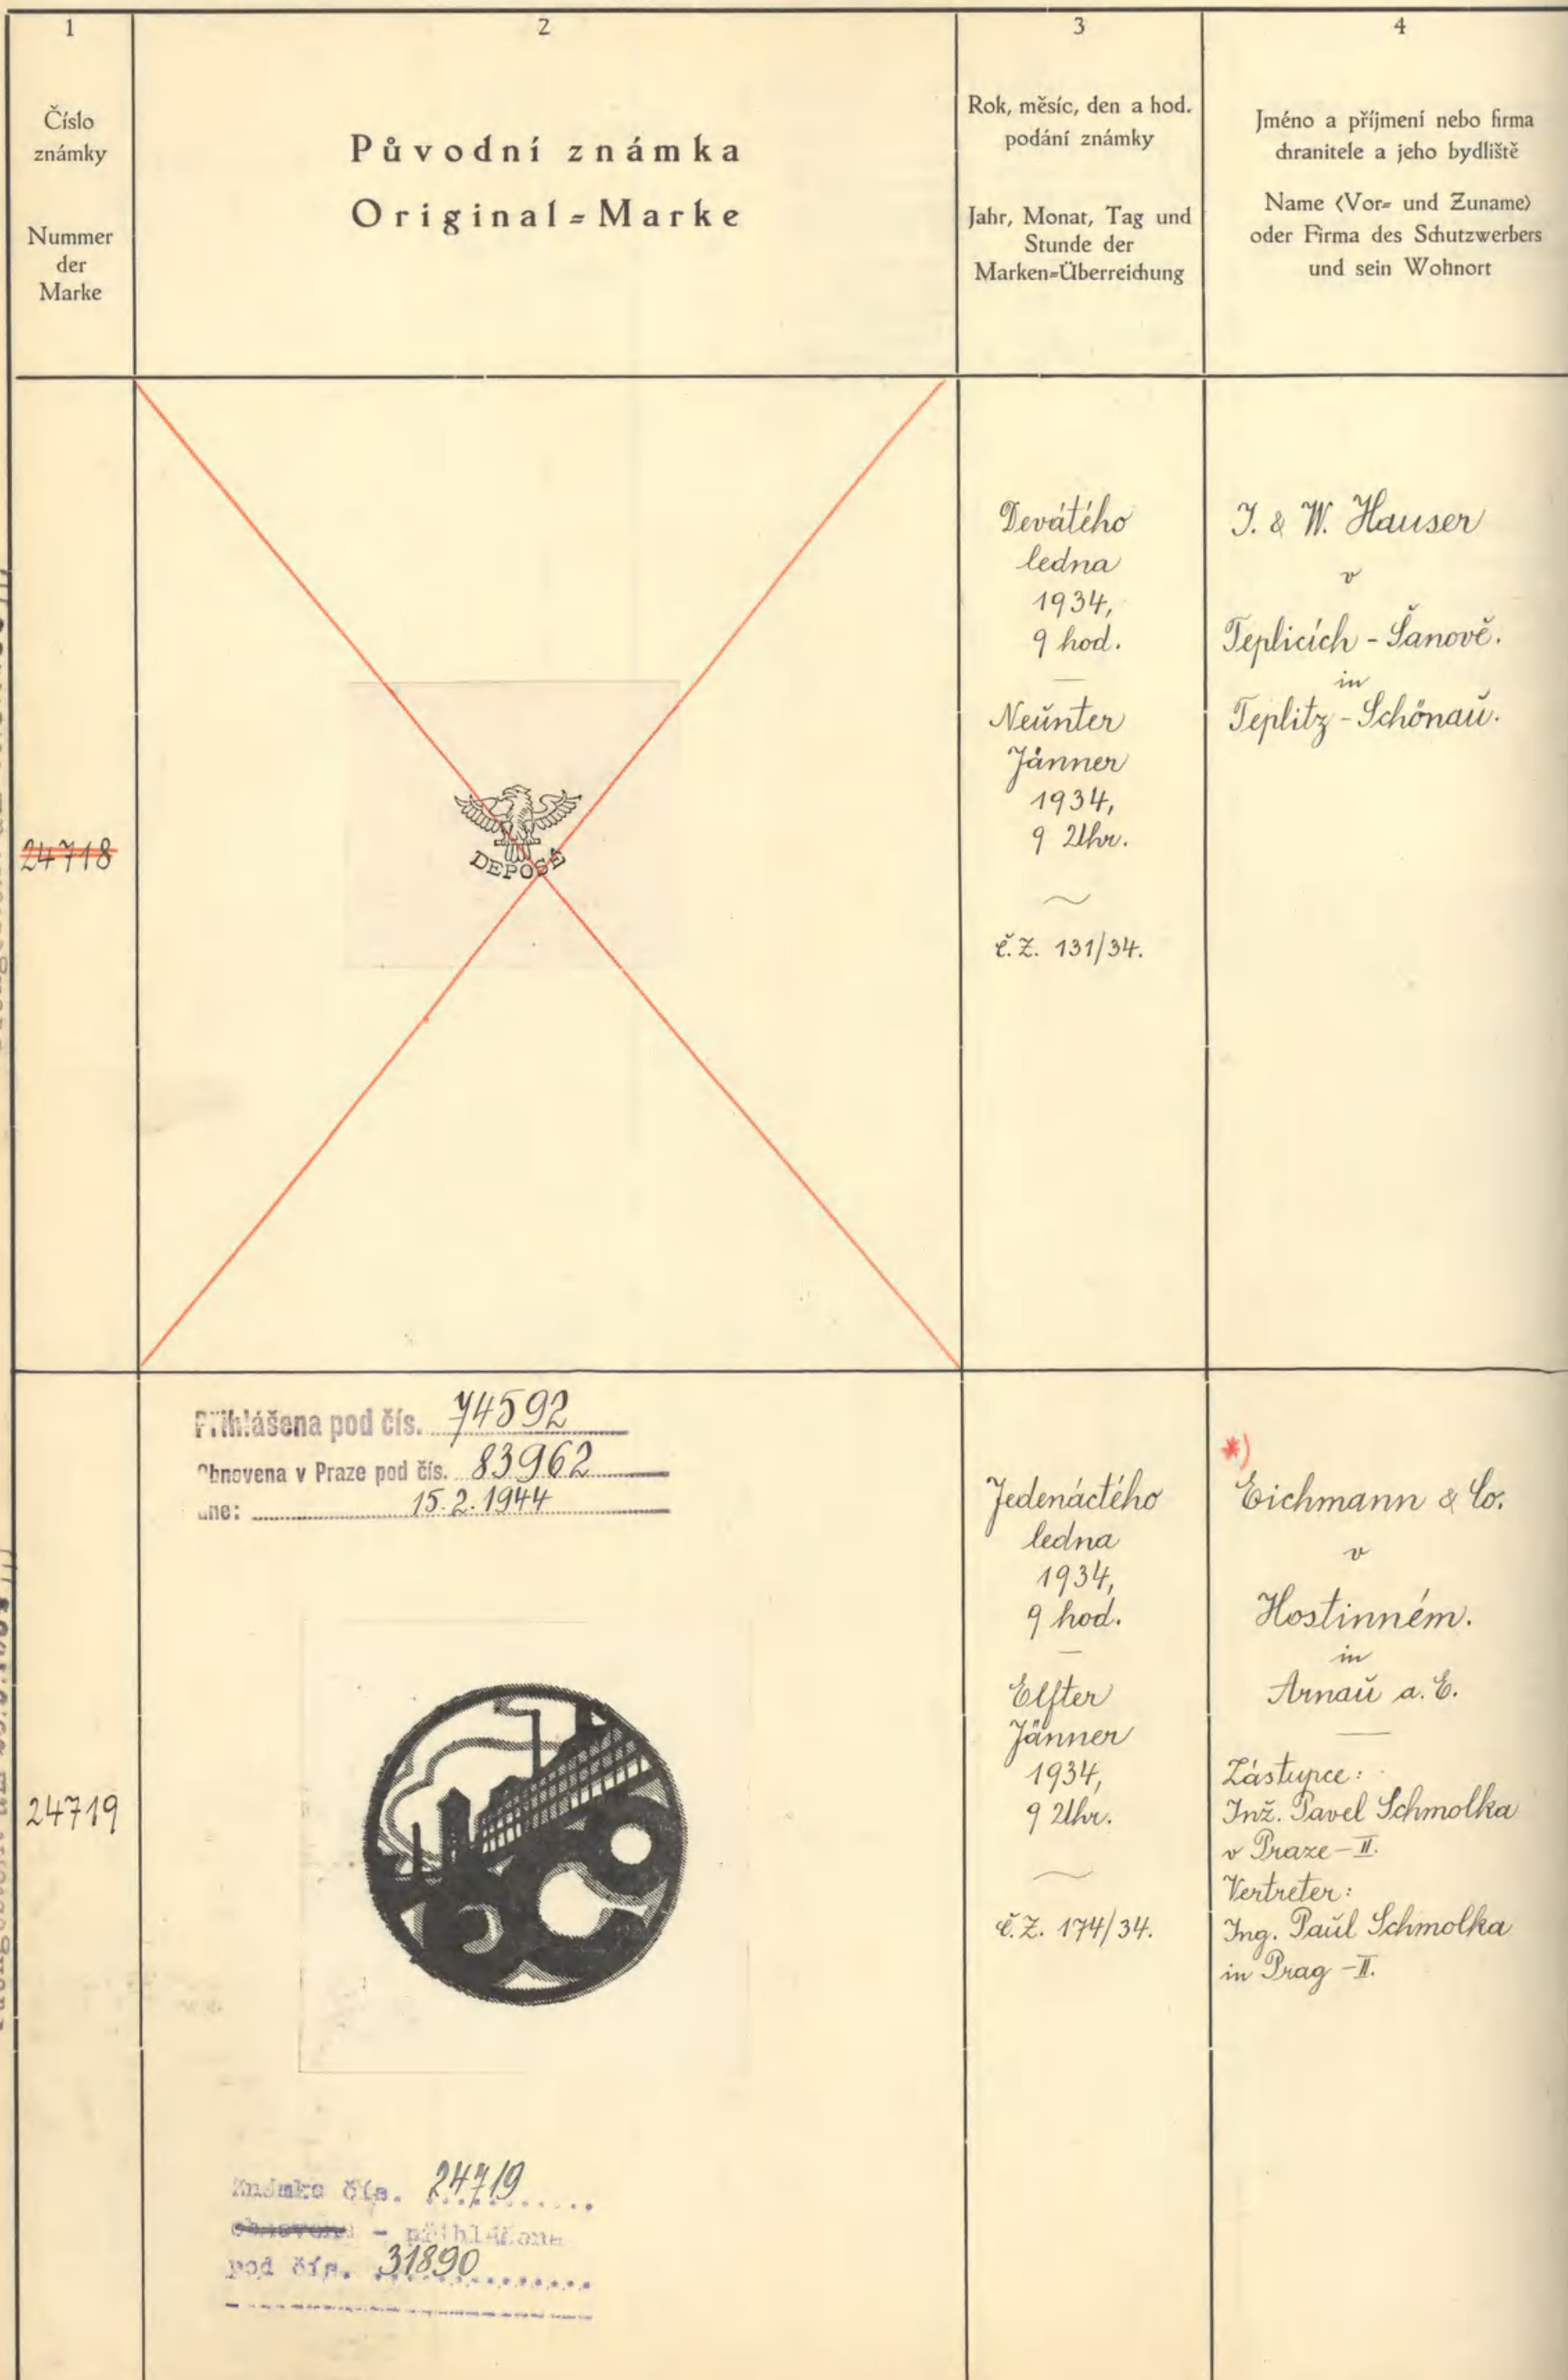 1
Číslo
známky
Nummer
der
Marke
2
Původní známka
Original=Marke
3
Rok, měsíc, den a hod.
podání známky
Jahr, Monat, Tag und
Stunde der
Marken=Überreichung
4
Jméno a příjmení nebo firma
chranitele a jeho bydliště
Name (Vor= und Zuname)
oder Firma des Schutzwerbers
und sein Wohnort
24718
DEPOSÉ
Devátého
ledna
1934,
9 hod.
Neŭnter
Jänner
1934,
9 Uhr.
č.Z. 131/34.
J. & W. Hauser
v
Teplicích - Šanově.
in
Teplitz - Schönaŭ.
24719
Přihlášena pod čís. 74592
Obnovena v Praze pod čís. 83962
dne: 15.2.1944
Známka čís. 24719
obnovena - přihlášena
pod čís. 31890
Jedenáctého
ledna
1934,
9 hod.
Elfter
Jänner
1934,
9 Uhr.
č.Z. 174/34.
*)
Eichmann & Co.
v
Hostinném.
in
Arnaŭ a. E.
Zástupce:
Inž. Pavel Schmolka
v Praze - II.
Vertreter:
Ing. Paŭl Schmolka
in Prag - II.